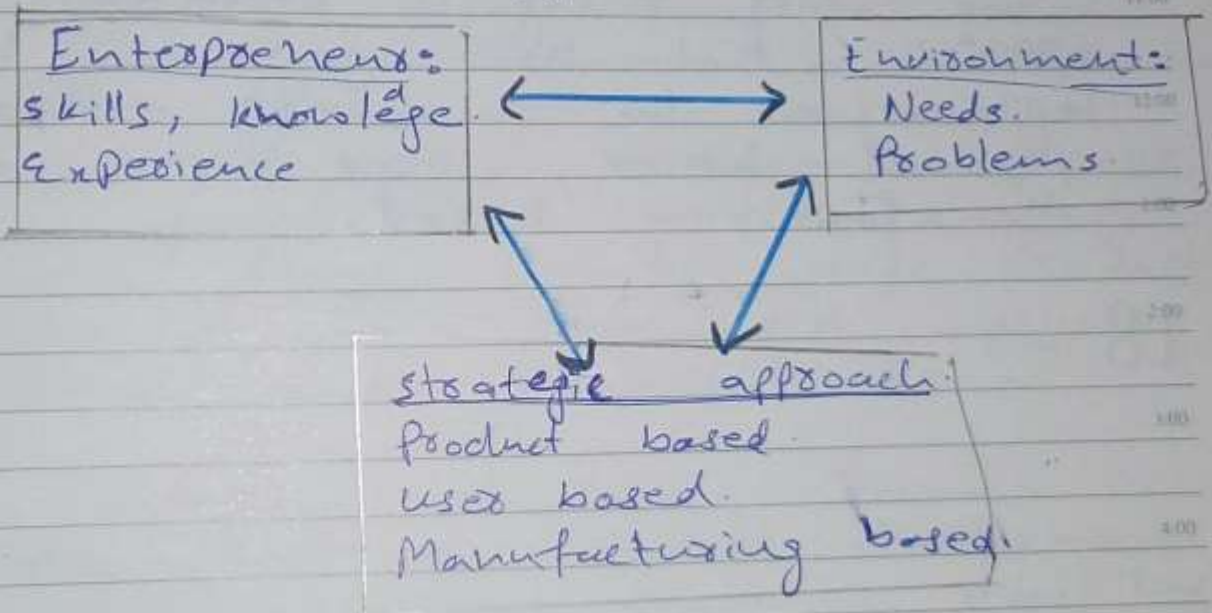 Enterpreneur:
skills, knowoledge.
Experience
Environment:
Needs.
Problems.
strategic approach.
Product based.
user based.
Manufacturing based.
12:00
1:00
2:00
3:00
4:00